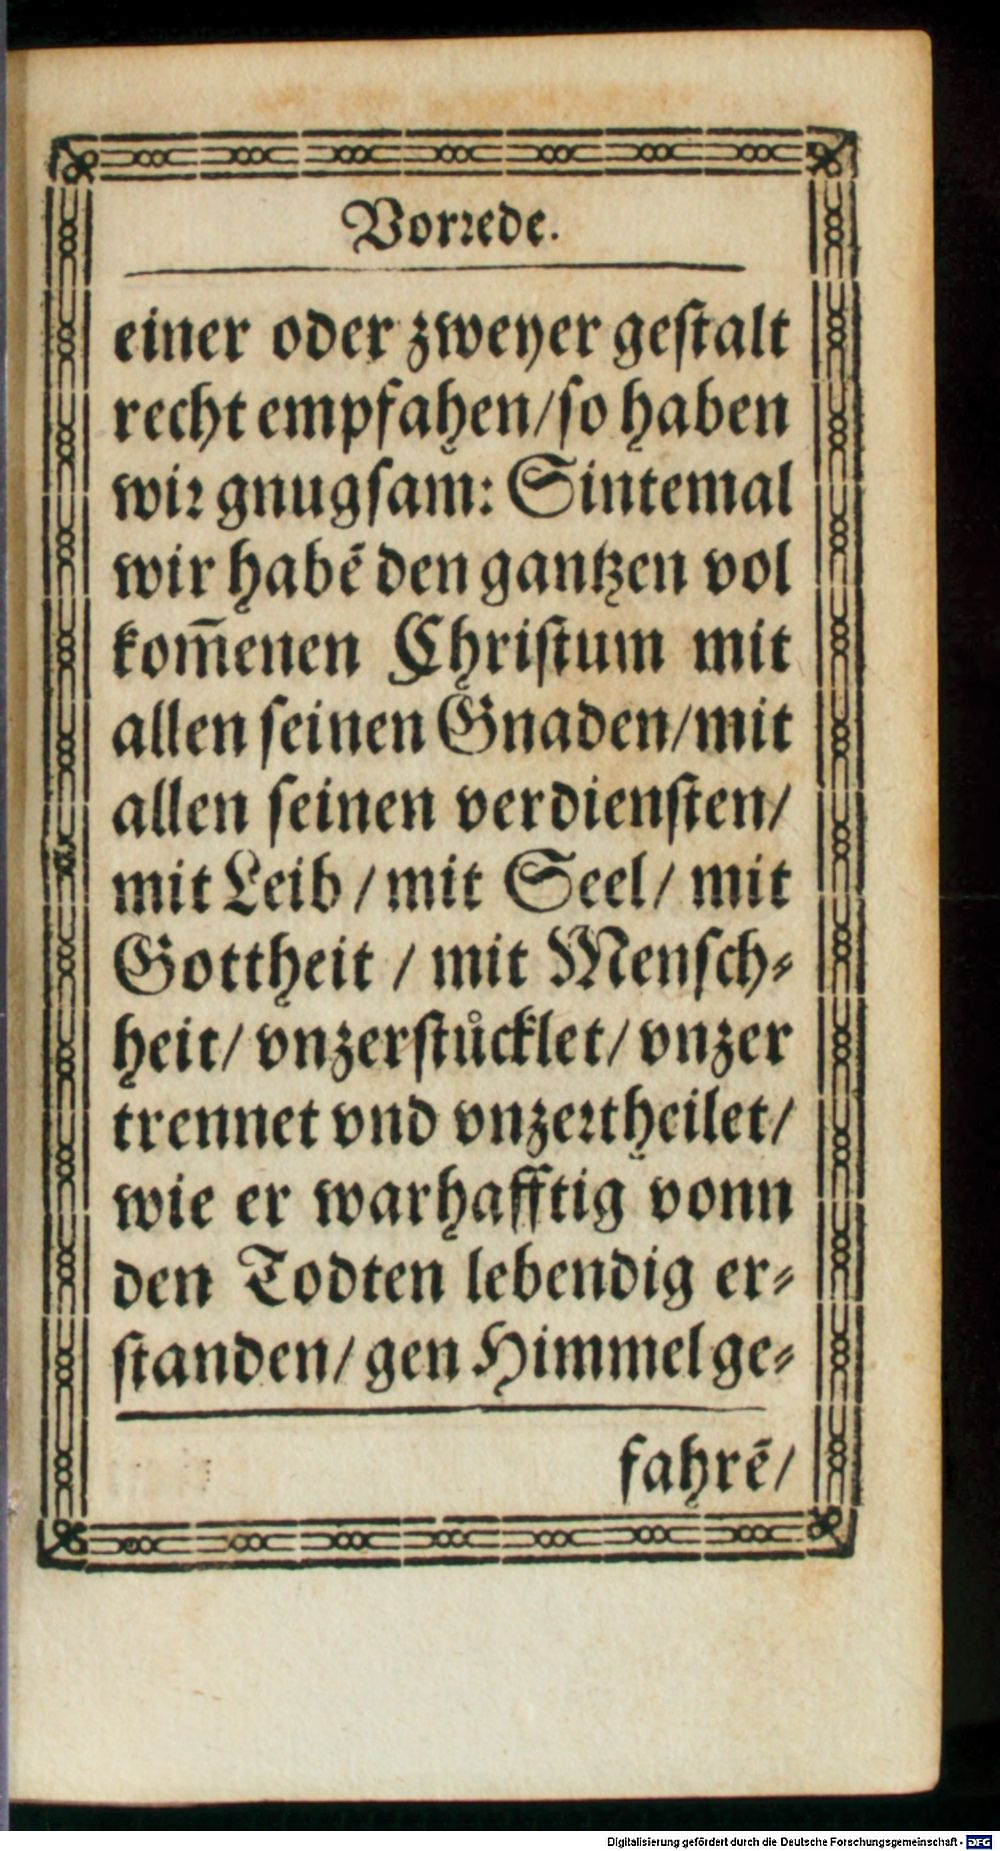 Vorꝛede.
einer oder zweyer geſtalt
recht empfahen/ſo haben
wiꝛ gnugſam: Sintemal
wir habẽ den gantzen vol
kom̃enen Chriſtum mit
allen ſeinen Gnaden/mit
allen ſeinen verdienſten/
mit Leib/mit Seel/ mit
Gottheit / mit Menſch⸗
heit/ vnzerſtuͤcklet/ vnzer
trennet vnd vnzeꝛtheilet/
wie er warhafftig vonn
den Todten lebendig er⸗
ſtanden/ gen Himmel ge⸗
fahrẽ/
Digitalisierung gefördert durch die Deutsche Forschungsgemeinschaft - DFG